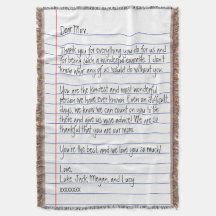 Dear Mum,
Thank you for everything you do for us and
for being such a wonderful example. I don't
know what any of us would do without you.
You are the kindest and most wonderful
person we have ever known. Even on difficult
days, we know we can count on you to be
there and give us wise advice! We are so
thankful that you are our mom.
You're the best, and we love you so much!
Love,
Luke, Jack, Megan, and Lucy
xxxxxxxx